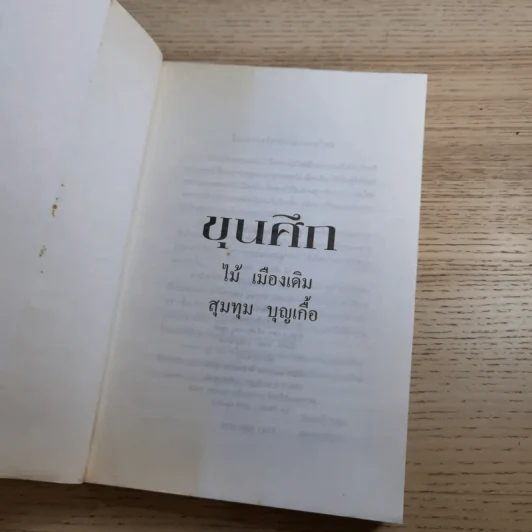 ขุนศึก
ไม้ เมืองเดิม
สุมทุม บุญเกื้อ